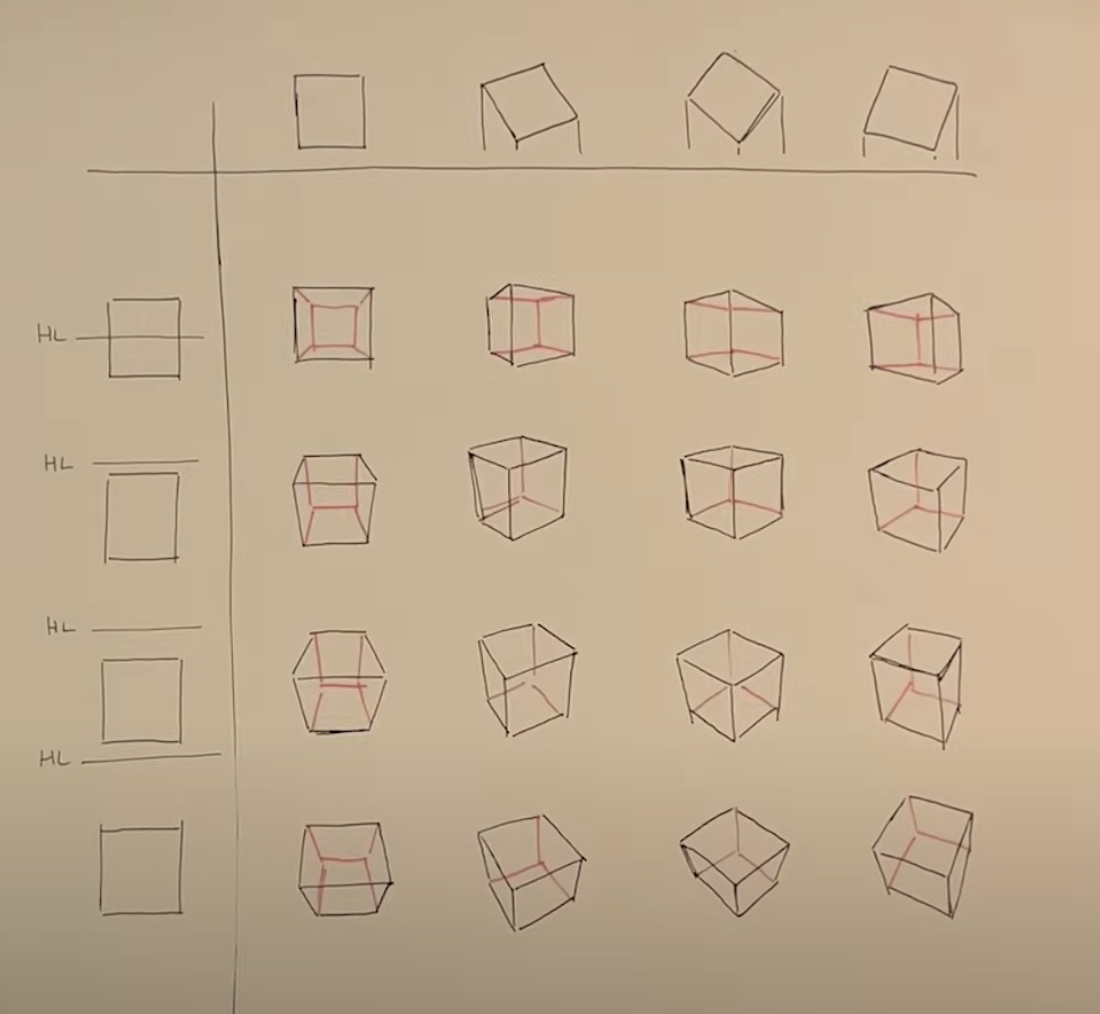 HL
HL
HL
HL